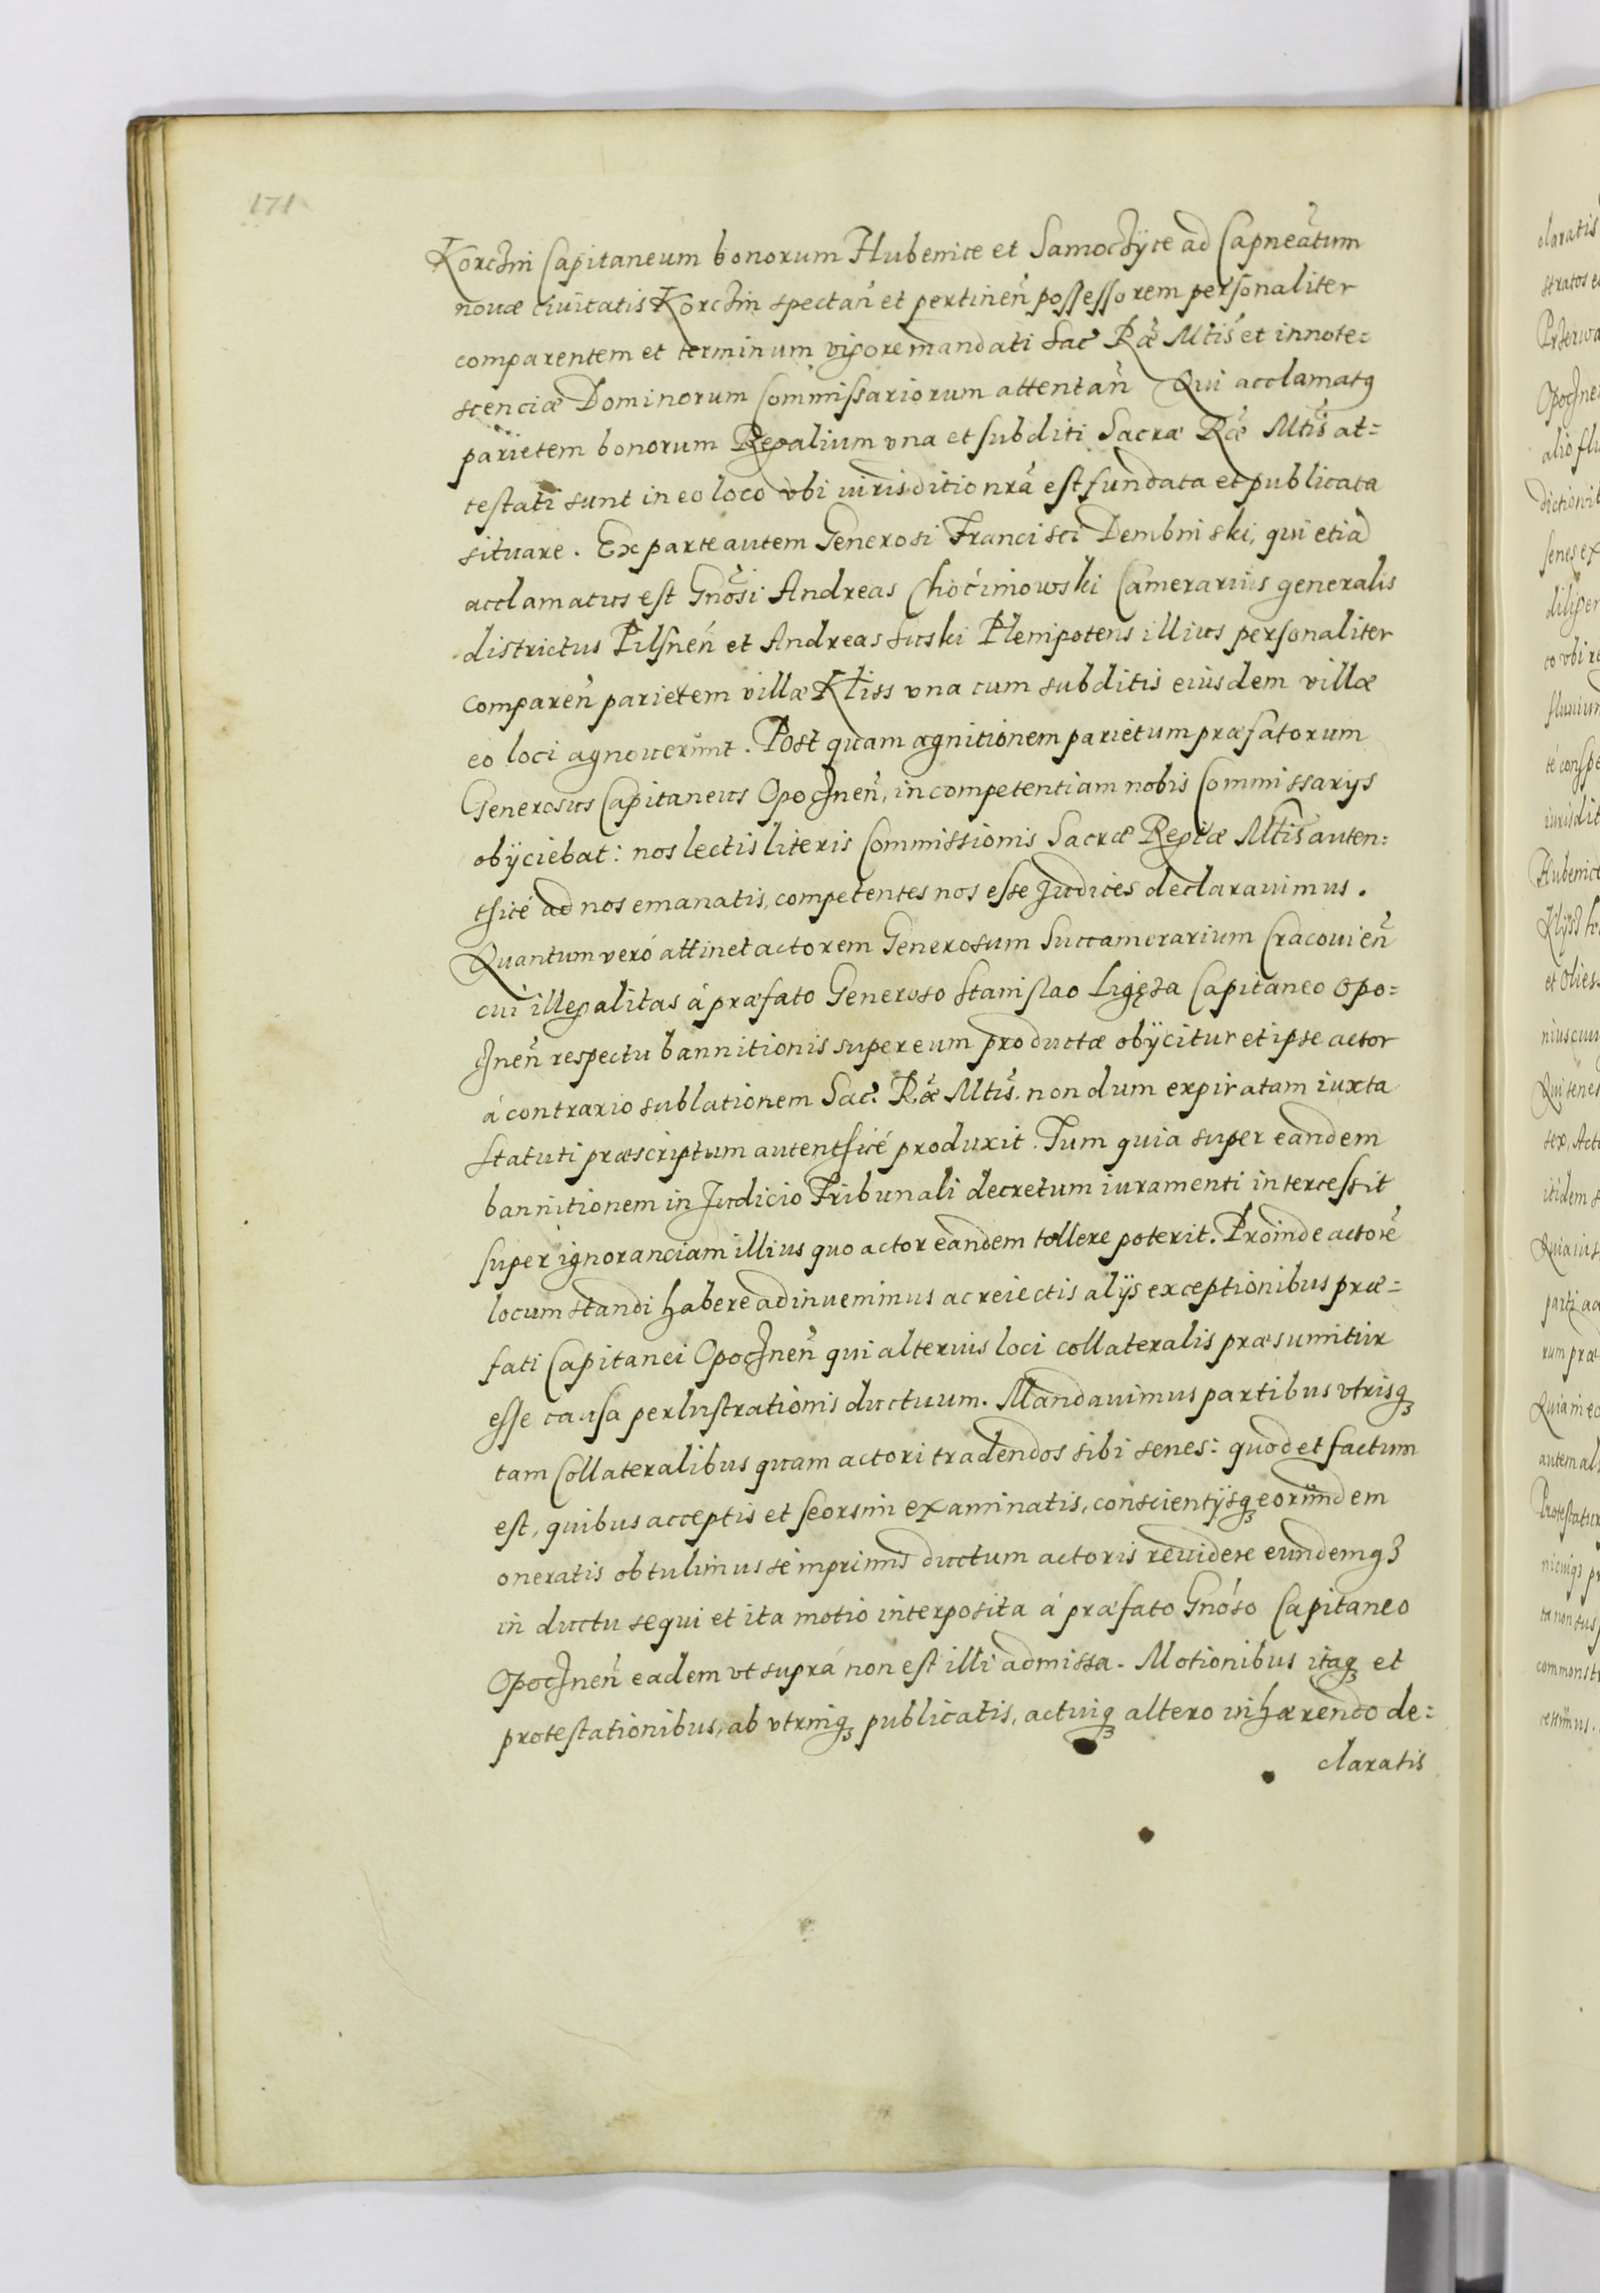 171
Korczin Capitaneum bonorum Hubenice et Samoczÿce ad Capneãtum
nouæ ciuitatis Korczin spectan̄ et pertinen̄ possessorem personaliter
comparentem et terminum vigore mandati Sac̄ Rǣ Mtis̄ et innote=
scenciæ Dominorum Commissariorum attentan̄ Qui acclamatꝯ
parietem bonorum Regalium vna et subditi Sacræ Rǣ Mtis̄ at=
testati sunt in eo loco vbi iurisditio nrã est fundata et publicata
situare. Ex parte autem Generosi Francisci Dembinski, qui etiã
acclamatus est Gnõsi Andreas Choċimowski Camerarius generalis
districtus Pilsnen̄ et Andreas suski Plenipotens illius personaliter
comparen̄ parietem villæ Kliss vna cum subditis eiusdem villæ
eo loci agnouerunt. Post quam agnitionem parietum præfatorum
Generosus Capitaneus Opocznen̄, incompetentiam nobis Commissarys
obÿciebat: nos lectis literis Commissionis Sacræ Regiæ Mtis̄ auten=
thicé ad nos emanatis, competentes nos esse Judices declarauimus.
Quantum veró attinet actorem Generosum Succamerarium Cracouien̄
cui illegalitas á præfato Generoso Stanislao Ligęza Capitaneo Opo=
cznen̄ respectu bannitionis super eum productæ obÿcitur et ipse actor
á contrario sublationem Sac̄. Rǣ Mtis̄. non dum expiratam iuxta
Statuti præscriptum autenthicé produxit. Tum quia super eandem
bannitionem in Judicio Tribunali decretum iuramenti intercessit
super ignoranciam illius quo actor eandem tollere poterit. Proinde actorē
locum standi habere adinuenimus ac reiectis alÿs exceptionibus præ=
fati Capitanei Opocznen̄ qui alterius loci collateralis præsumitur
esse causa perlustrationis ductuum. Mandauimus partibus vtrisqꝫ
tam Collateralibus quam actori tradendos sibi senes: quod et factum
est, quibus acceptis et seorsim examinatis, conscientÿsqꝫ eorundem
oneratis obtulimus se inprimis ductum actoris reuidere eundemqꝫ
in ductu sequi et ita motio interposita á præfato Gnóso Capitaneo
Opocznen̄ eadem vt suprá non est illi admissa. Motionibus itaqꝫ et
protestationibus, ab vtrinqꝫ publicatis, actuiqꝫ altero inhærendo de=
claratis